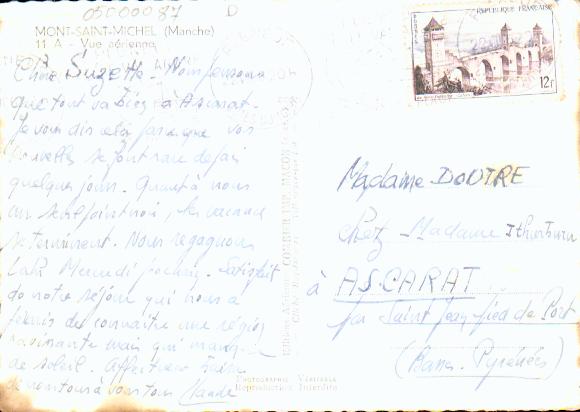 05000087 D
MONT-SAINT-MICHEL (Manche)
11 A - Vue aérienne
Chère Suzette - Nous pensons
que tout va bien à Ascarat.
Je vous dis cela parce que vos
nouvelles se font rare depuis
quelques jours. Quant à nous
un seul point noir, les vacances
se terminent. Nous regagnons
Mercredi prochain. Satisfait
de notre séjour qui nous a
permis de connaitre une région
ravissante mais qui manque
de soleil. Affectueux baisers
de nous tous à vous tous
PHOTOGRAPHIE VÉRITABLE
Reproduction Interdite
REPUBLIQUE FRANÇAISE
POSTES
12F
Madame DOUTRE
Chez Madame
à ASCARAT
par Saint Jean Pied de Port
(Basses Pyrénées)